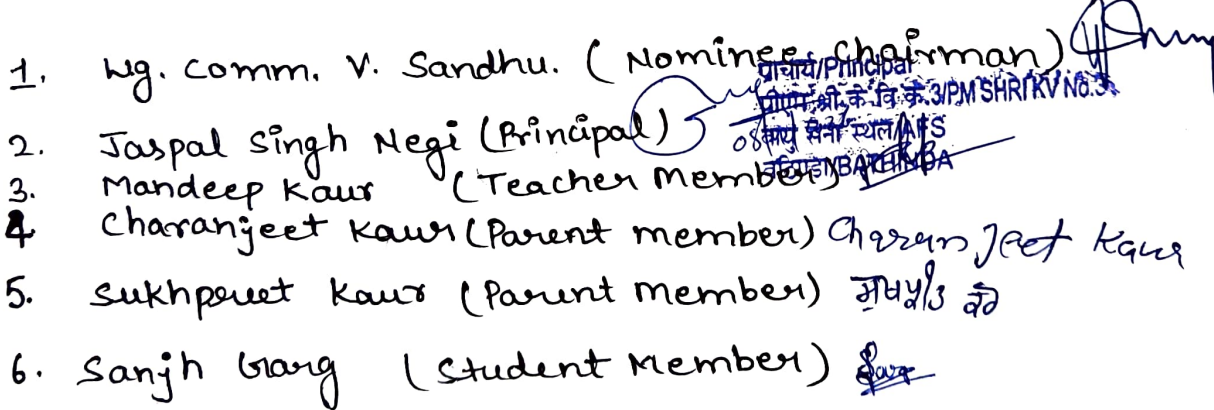 1. Wg. Comm. V. Sandhu. (Nominee Chairman)
प्राचार्य/Principal
पीएम श्री के वि क्र. 3/PM SHRI KV No.3
2. Jaspal Singh Negi (Principal)
वायु सेना स्थल/AFS
बठिण्डा/BATHINDA
3. Mandeep Kaur (Teacher Member)
4 Charanjeet Kaur (Parent member) Charanjeet Kaur
5. Sukhpreet Kaur (Parent member) ਸੁਖਪ੍ਰੀਤ ਕੌਰ
6. Sanjh Garg (Student Member)